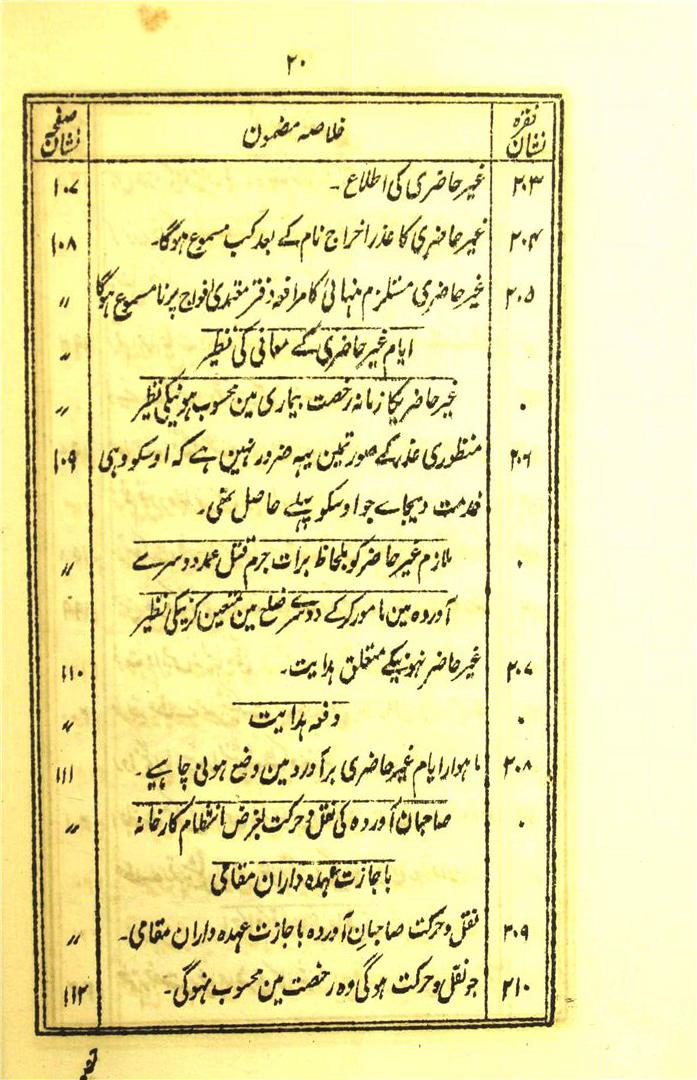 ۲۰
نشان فقرہ | خلاصہ مضمون | نشان صفحہ
۲۰۳ | غیر حاضری کی اطلاع۔ | ۱۰۷
۲۰۴ | غیر حاضری کا عذر اخراج نام کے بعد کب مسموع ہوگا۔ | ۱۰۸
۲۰۵ | غیر حاضری مستلزم منہائی کا مرافعہ دفتر معتمدی افواج پر نا مسموع ہوگا | 〃
ایام غیر حاضری کے معافی کی نظیر | 〃
۰ | غیر حاضریکا زمانہ رخصت بیماری مین محسوب ہونیکی نظیر | 〃
۲۰۶ | منظوری عذر کے صورتمین یہہ ضرور نہین ہے کہ اوسکو وہی | ۱۰۹
خدمت دیجاے جو اوسکو پہلے حاصل تھی۔
۰ | ملازم غیر حاضر کو بلحاظ برات جرم قتل عمد دوسرے | 〃
آوردہ مین مامور کرکے دوسرے ضلع مین متعین کرنیکی نظیر
۲۰۷ | غیر حاضر نہونیکے متعلق ہدایت۔ | ۱۱۰
۰ | دفعہ ہدایت | 〃
۲۰۸ | ماہوار ایام غیر حاضری برآورد مین وضع ہونی چاہیے۔ | ۱۱۱
۰ | صاحبان آوردہ کی نقل و حرکت بغرض انتظام کارخانہ | 〃
باجازت عہدہ داران مقامی
۲۰۹ | نقل و حرکت صاحبانِ آوردہ باجازت عہدہ داران مقامی۔ | 〃
۲۱۰ | جو نقل و حرکت ہوگی وہ رخصت مین محسوب نہوگی۔ | ۱۱۲